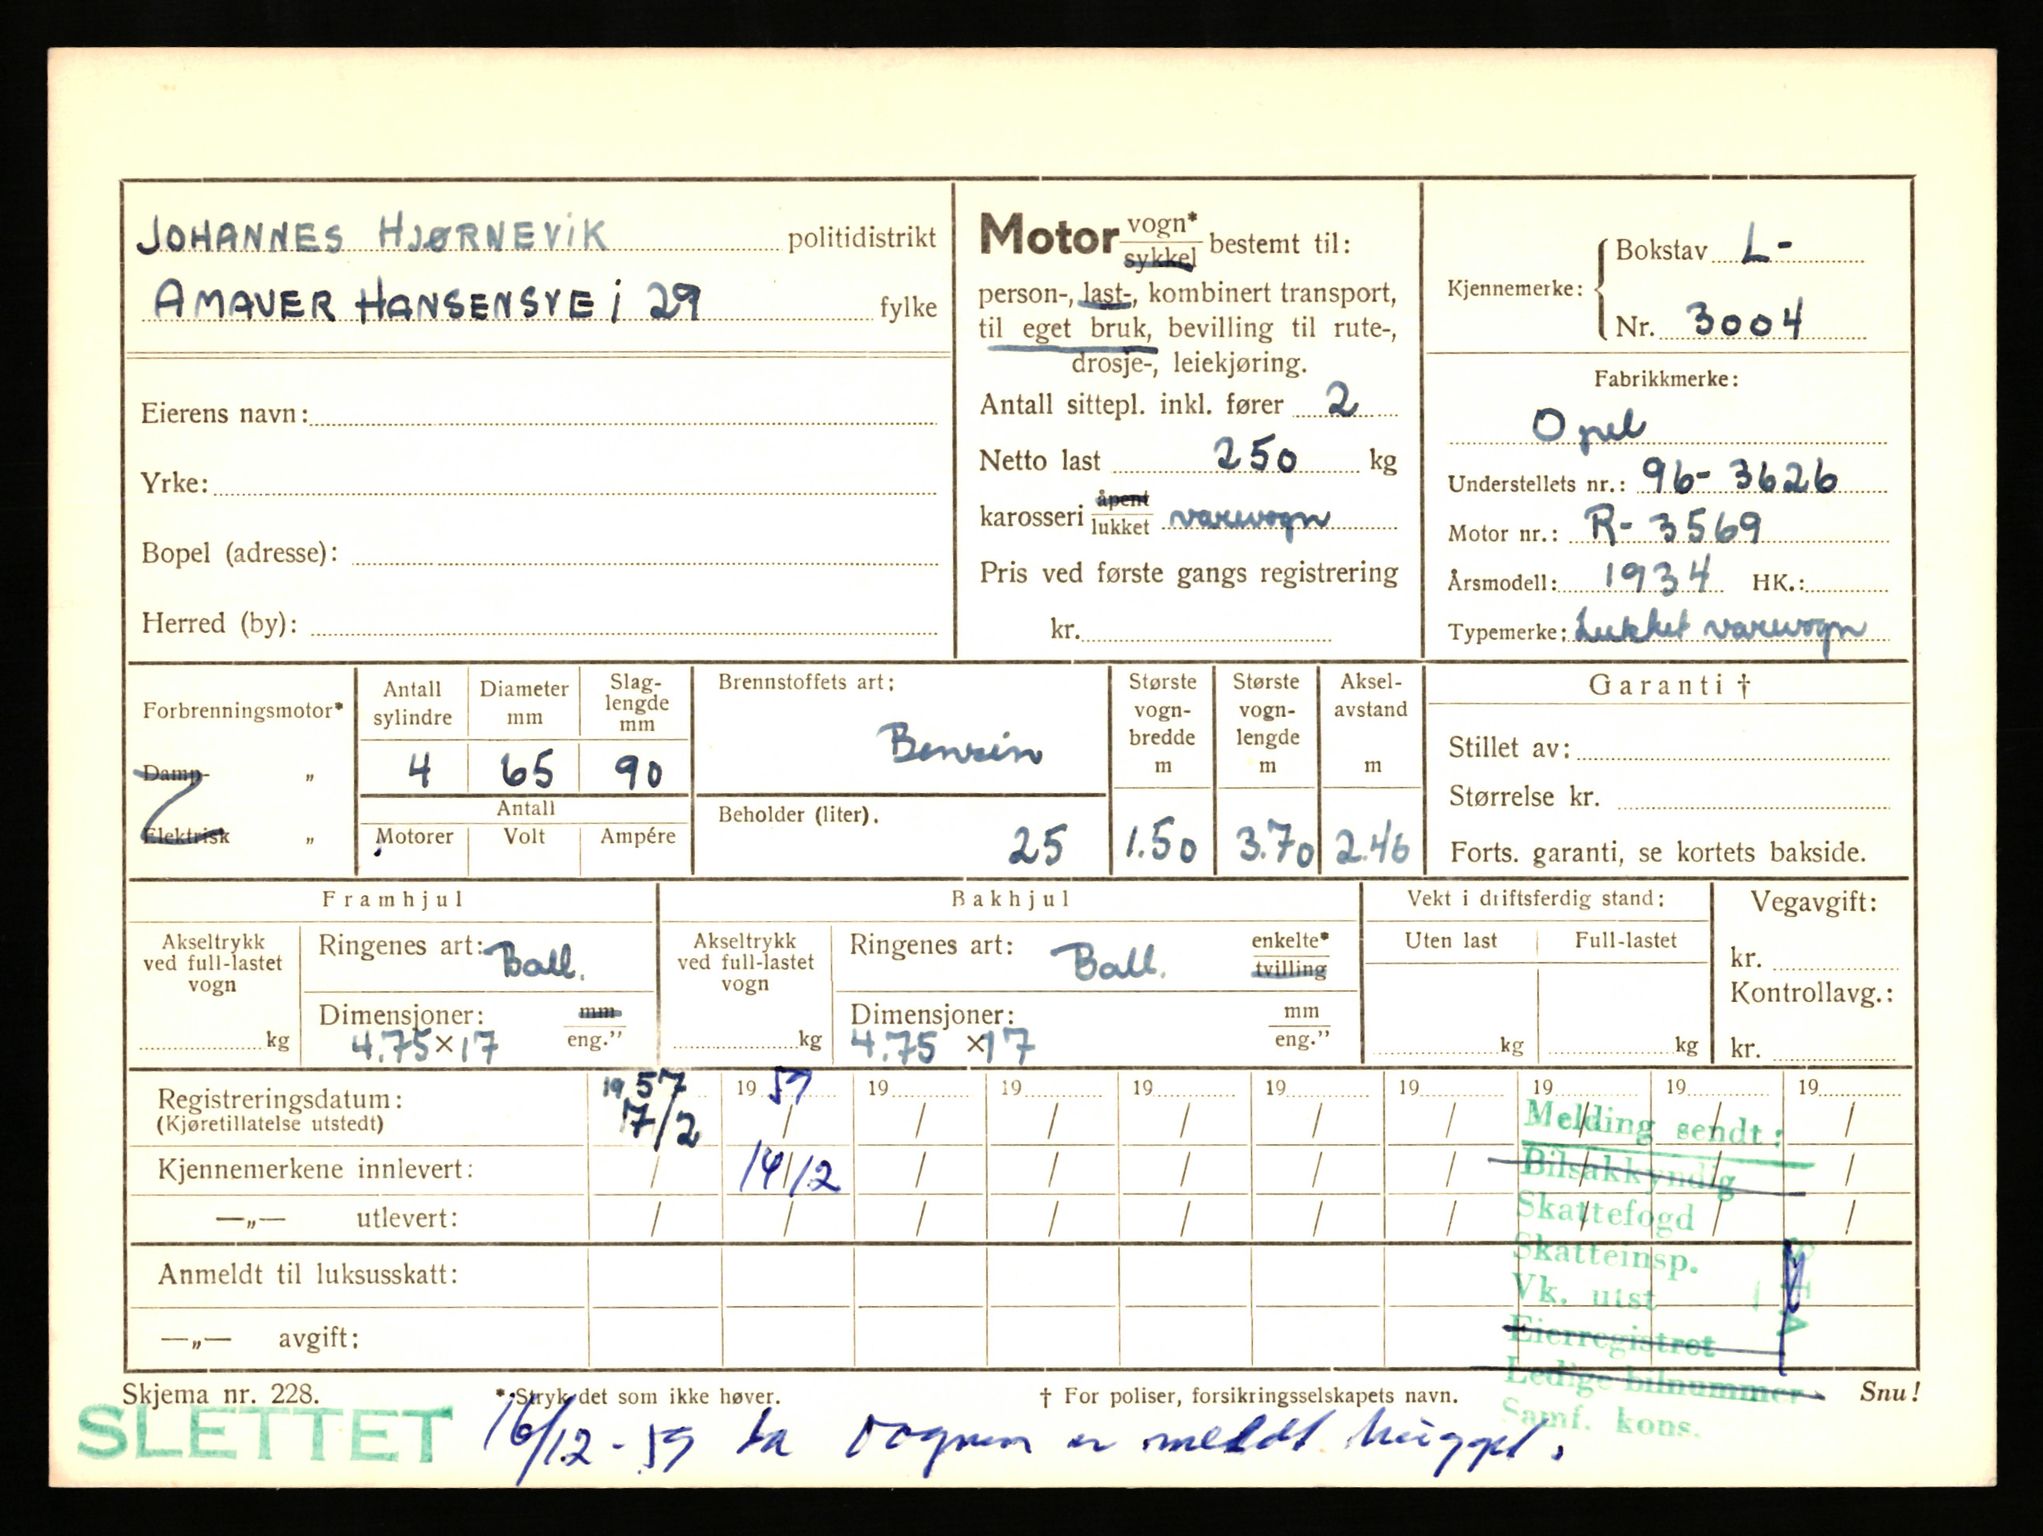 JOHANNES HJØRNEVIK politidistrikt
AMAVER HANSENSVEI 29 fylke
Eierens navn:
Yrke:
Bopel (adresse):
Herred (by):
Motor vogn* sykkel bestemt til:
person-, last-, kombinert transport,
til eget bruk, bevilling til rute-,
drosje-, leiekjøring.
Antall sittepl. inkl. fører 2
Netto last 250 kg
karosseri åpent lukket varevogn
Pris ved første gangs registrering
kr.
Kjennemerke: Bokstav L-
Nr. 3004
Fabrikkmerke:
Opel
Understellets nr.: 96-3626
Motor nr.: R-3569
Årsmodell: 1934 HK.:
Typemerke: Lukket varevogn
Forbrenningsmotor*
Damp- „
Elektrisk „
Antall sylindre
Diameter mm
Slag-lengde mm
4 65 90
Antall
Motorer Volt Ampére
Brennstoffets art:
Bensin
Beholder (liter).
25
Største vogn-bredde m
1.50
Største vogn-lengde m
3.70
Aksel-avstand m
2.46
Garanti †
Stillet av:
Størrelse kr.
Forts. garanti, se kortets bakside.
Framhjul
Akseltrykk ved full-lastet vogn
kg
Ringenes art: Ball.
Dimensjoner: mm eng.”
4.75×17
Bakhjul
Akseltrykk ved full-lastet vogn
kg
Ringenes art: Ball. enkelte* tvilling
Dimensjoner: mm eng.”
4.75 ×17
Vekt i driftsferdig stand:
Uten last Full-lastet
kg kg
Vegavgift:
kr.
Kontrollavg.:
kr.
Registreringsdatum: 19 57 19 59 19 19 19 19 19 19 19 19
(Kjøretillatelse utstedt) 7/2 / / / / / / / / /
Kjennemerkene innlevert: / 14/12 / / / / / / / /
—„— utlevert: / / / / / / / / / /
Anmeldt til luksusskatt:
—„— avgift:
Melding sendt:
Bilsakkyndig
Skattefogd
Skatteinsp.
Vk. utst
Eierregistret
Ledige bilnummer
Samf. kons.
Skjema nr. 228. * Stryk det som ikke høver. † For poliser, forsikringsselskapets navn. Snu!
SLETTET 16/12-59 da vognen er meldt hugget.